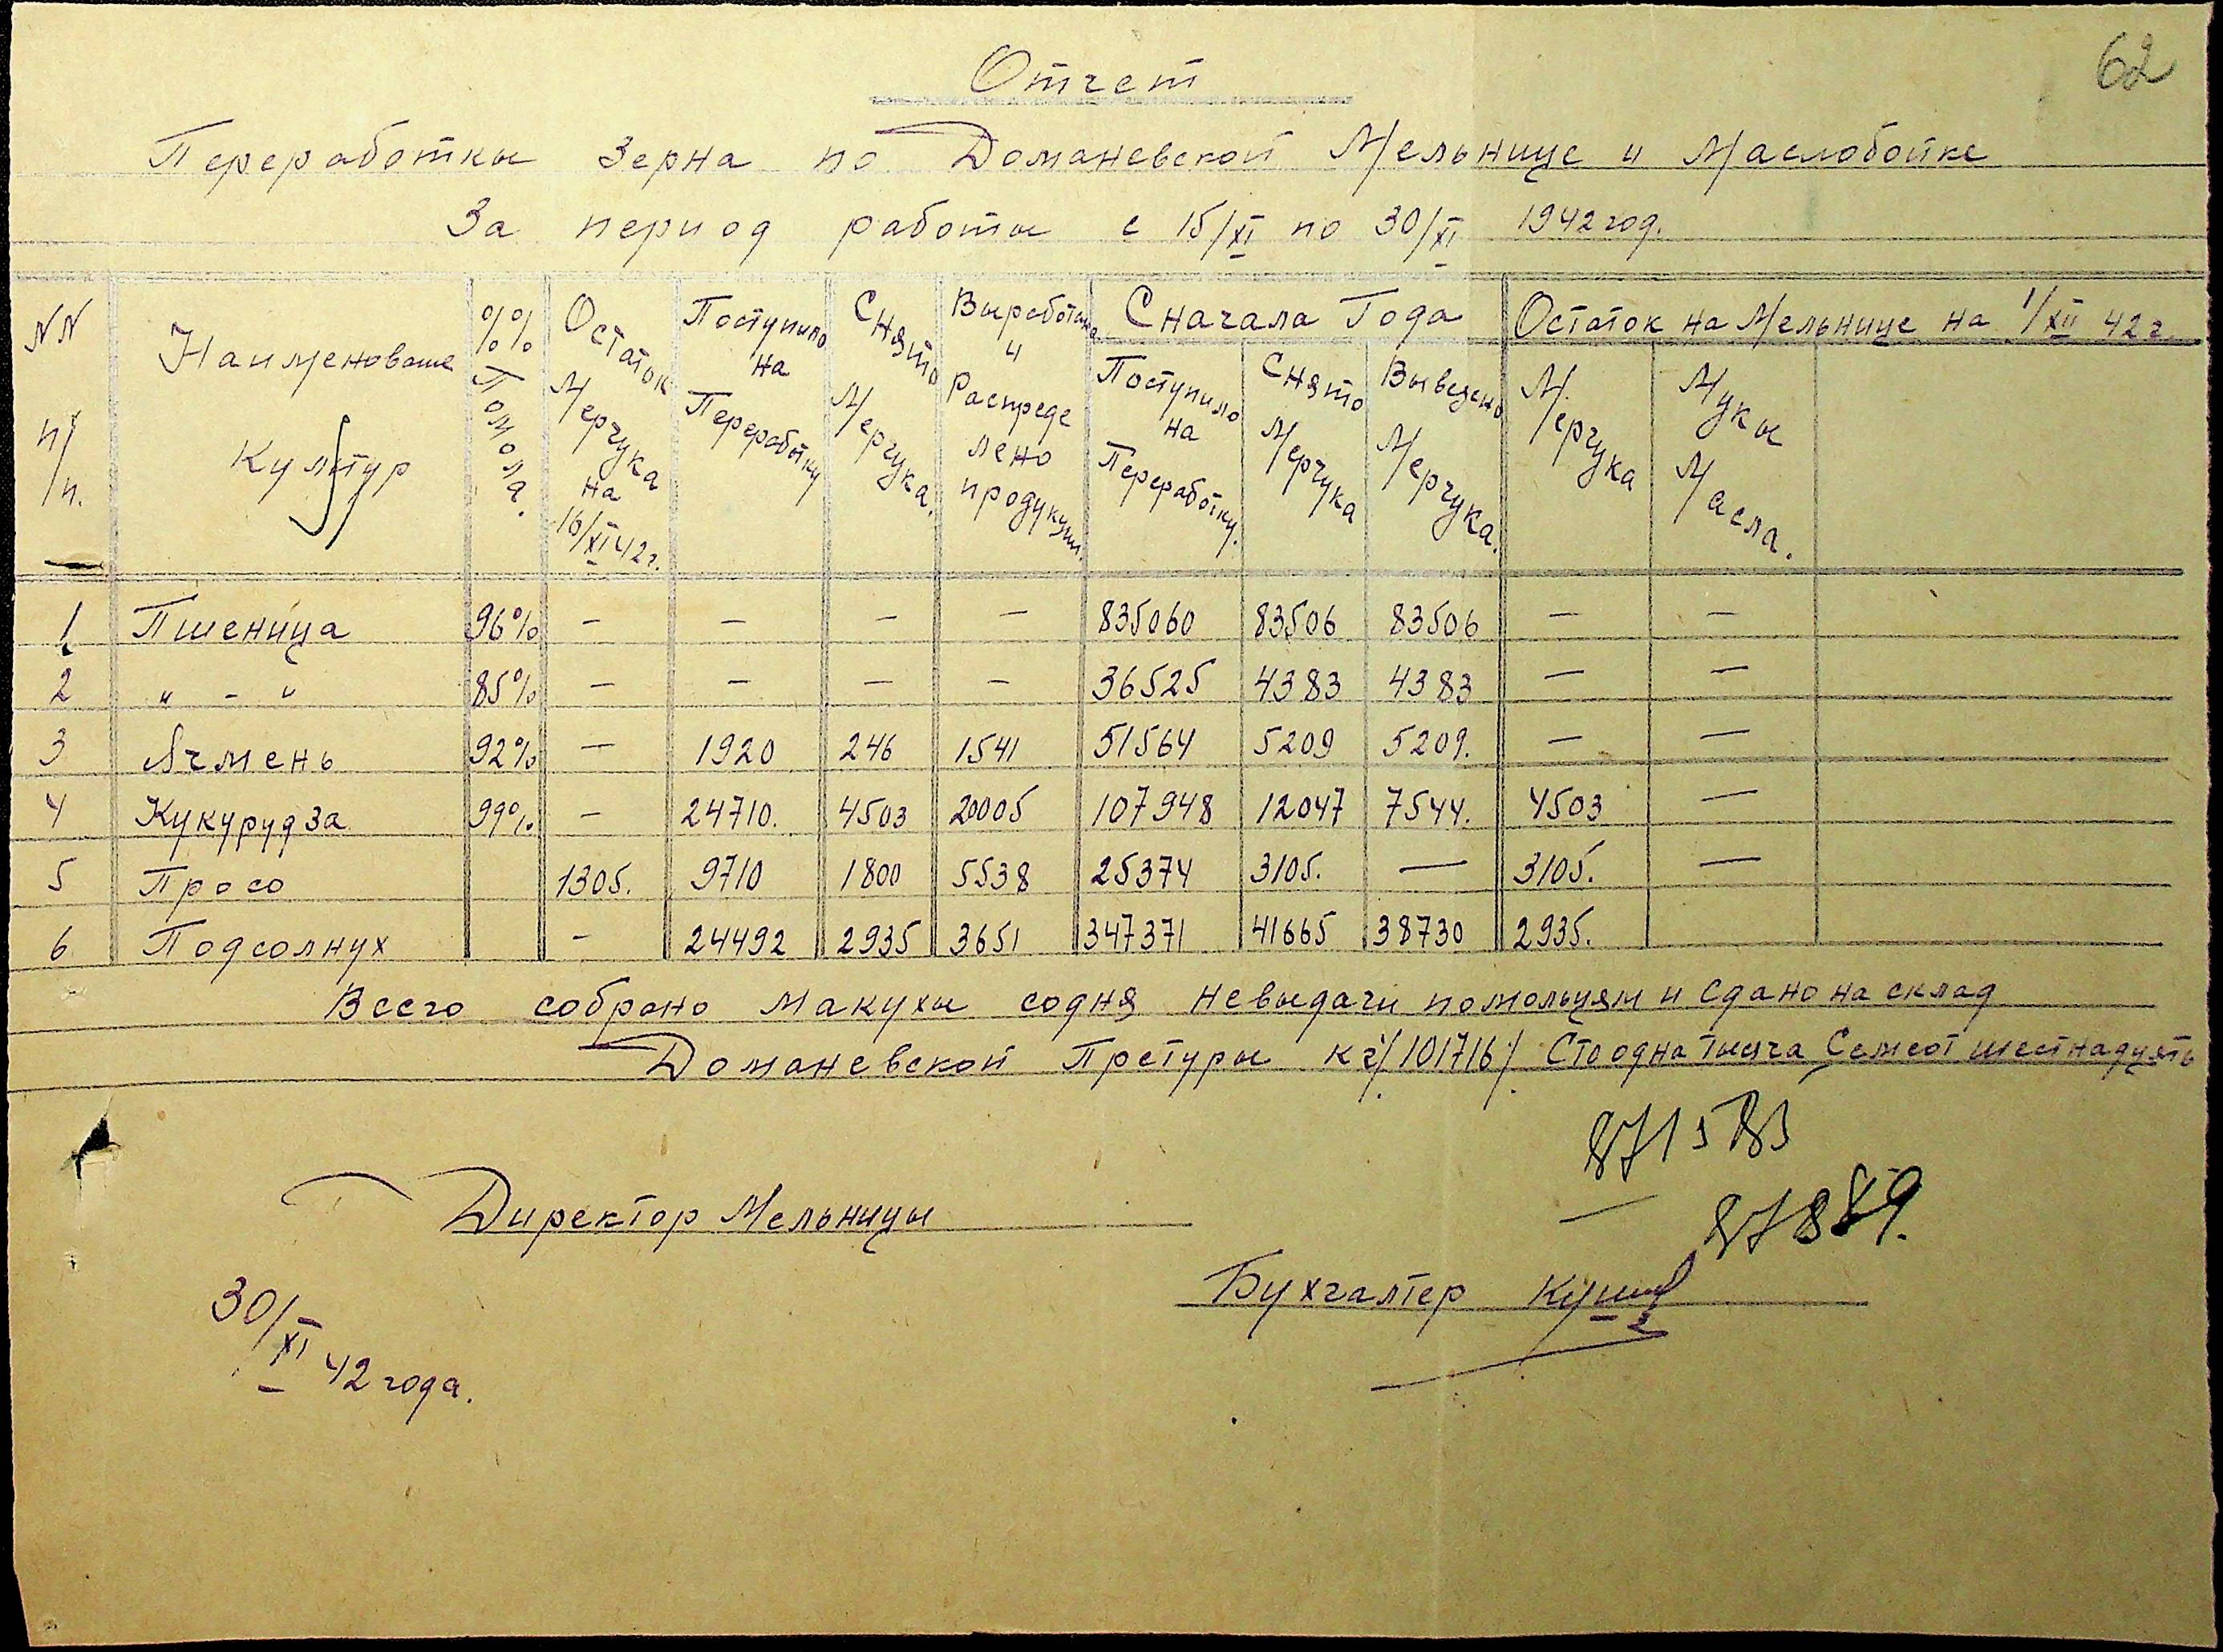 62
Отчет
Переработки Зерна по Доманевской Мельнице и Маслобойке
За период работы с 15/XI по 30/XI 1942 год.
NN п/п. Наименование Культур %% Помола. Остаток Мерчука на 16/XI 42 г. Поступило на Переработку Снято Мерчука. Выработано и Распределено продукции Сначала Года Остаток на Мельнице на 1/XII 42 г.
Поступило на Переработку. Снято Мерчука Выведено Мерчука. Мерчука Муки Масла.
1 Пшеница 96% — — — — 835060 83506 83506 — —
2 " - " 85% — — — — 36525 4383 4383 — —
3 Ячмень 92% — 1920 246 1541 51564 5209 5209. — —
4 Кукурудза 99% — 24710. 4503 20005 107948 12047 7544. 4503 —
5 Просо 1305. 9710 1800 5538 25374 3105. — 3105. —
6 Подсолнух - 24492 2935 3651 347371 41665 38730 2935.
Всего собрано макухи содня невыдачи помольцям и сдано на склад
Доманевской Претуры кг/101716/ Сто одна тысяча Семсот шестнадцять
87889.
Директор Мельницы
Бухгалтер
30/XI 42 года.